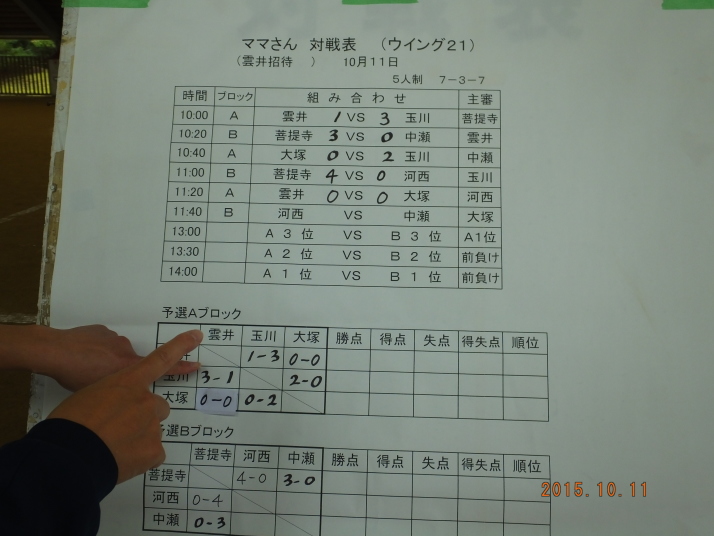 ママさん 対戦表 （ウイング２１）
（雲井招待 ） 10月11日
５人制 ７－３－７
時間 ブロック 組み合わせ 主審
10:00 A 雲井 1 VS 3 玉川 菩提寺
10:20 B 菩提寺 3 VS 0 中瀬 雲井
10:40 A 大塚 0 VS 2 玉川 中瀬
11:00 B 菩提寺 4 VS 0 河西 玉川
11:20 A 雲井 0 VS 0 大塚 河西
11:40 B 河西 VS 中瀬 大塚
13:00 A３位 VS B３位 A1位
13:30 A２位 VS B２位 前負け
14:00 A１位 VS B１位 前負け
予選Aブロック
雲井 玉川 大塚 勝点 得点 失点 得失点 順位
井 1-3 0-0
玉川 3-1 2-0
大塚 0-0 0-2
予選Bブロック
菩提寺 河西 中瀬 勝点 得点 失点 得失点 順位
菩提寺 4-0 3-0
河西 0-4
中瀬 0-3
2015.10.11